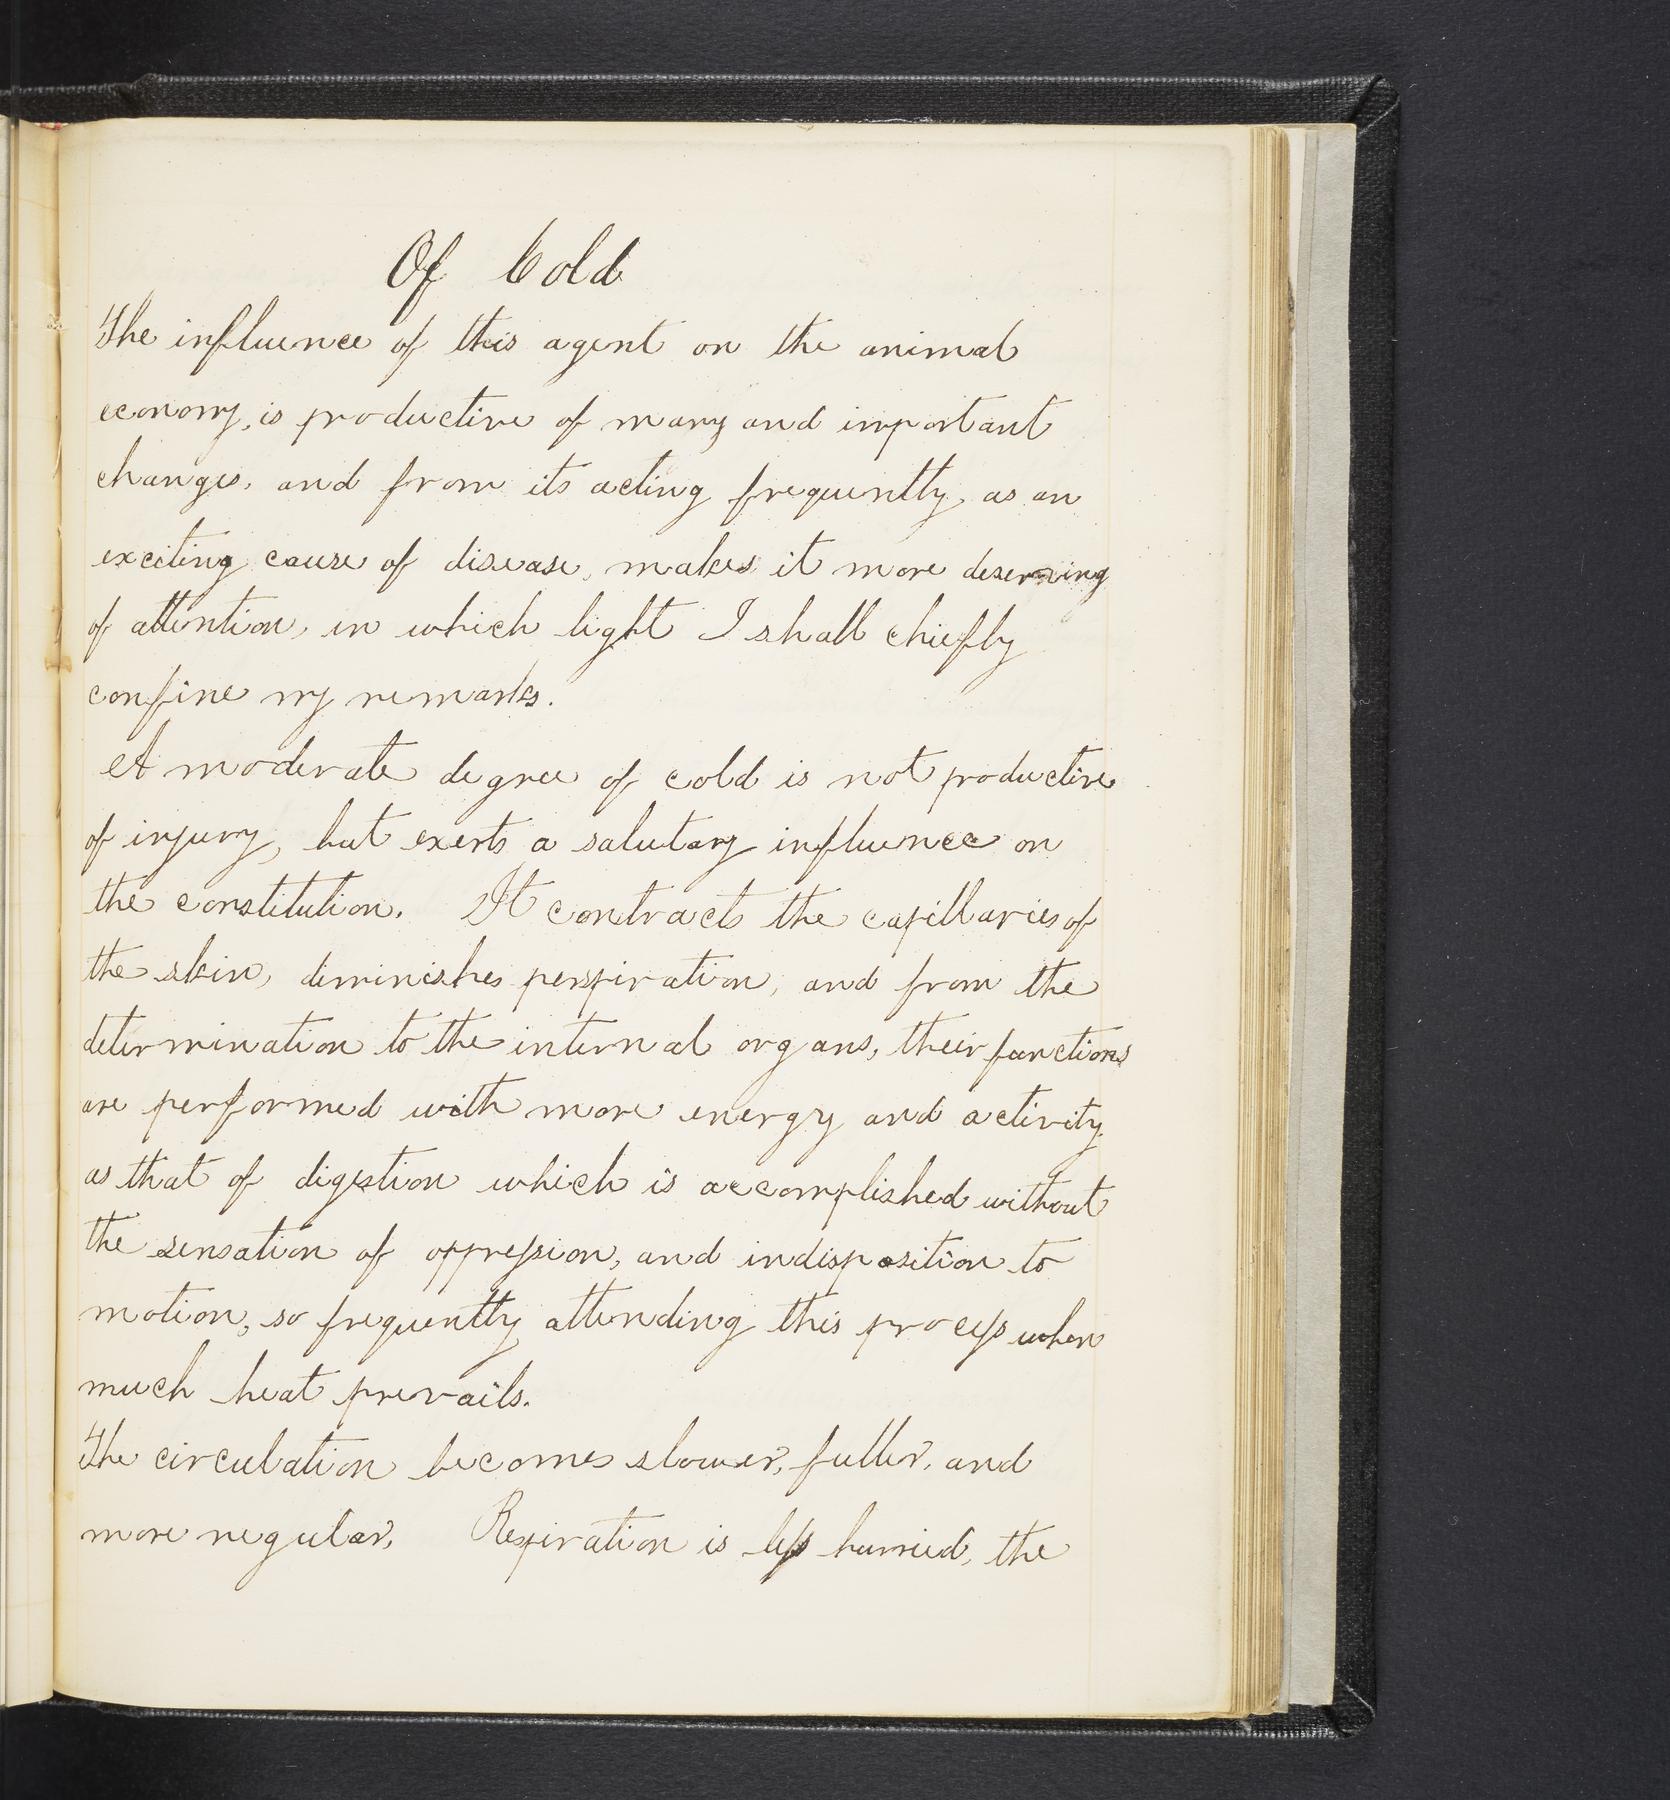 Of Cold
The influence of this agent on the animal
economy, is productive of many and important
changes, and from its acting frequently, as an
exciting cause of disease, makes it more deserving
of attention, in which light I shall chiefly
confine my remarks.
A moderate degree of cold is not productive
of injury, but exerts a salutary influence on
the constitution. It contracts the capillaries of
the skin, diminishes perspiration, and from the
determination to the internal organs, their functions
are performed with more energy and activity,
as that of digestion which is accomplished without
the sensation of oppression, and indisposition to
motion, so frequently attending this process when
much heat prevails.
The circulation becomes slower, fuller, and
more regular. Respiration is less hurried, the